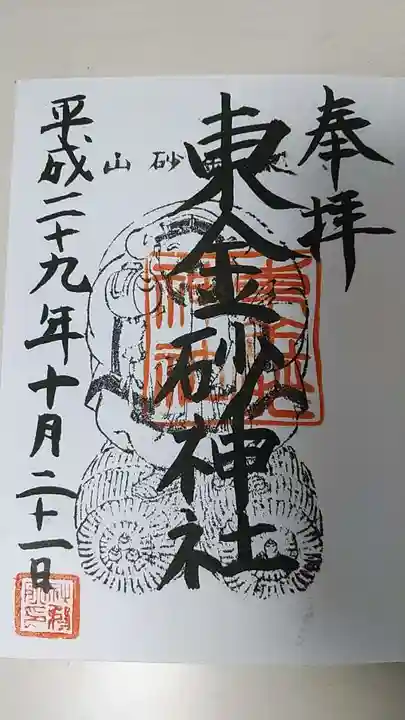 奉拝
東金砂神社
平成二十九年十月二十一日
山砂金東